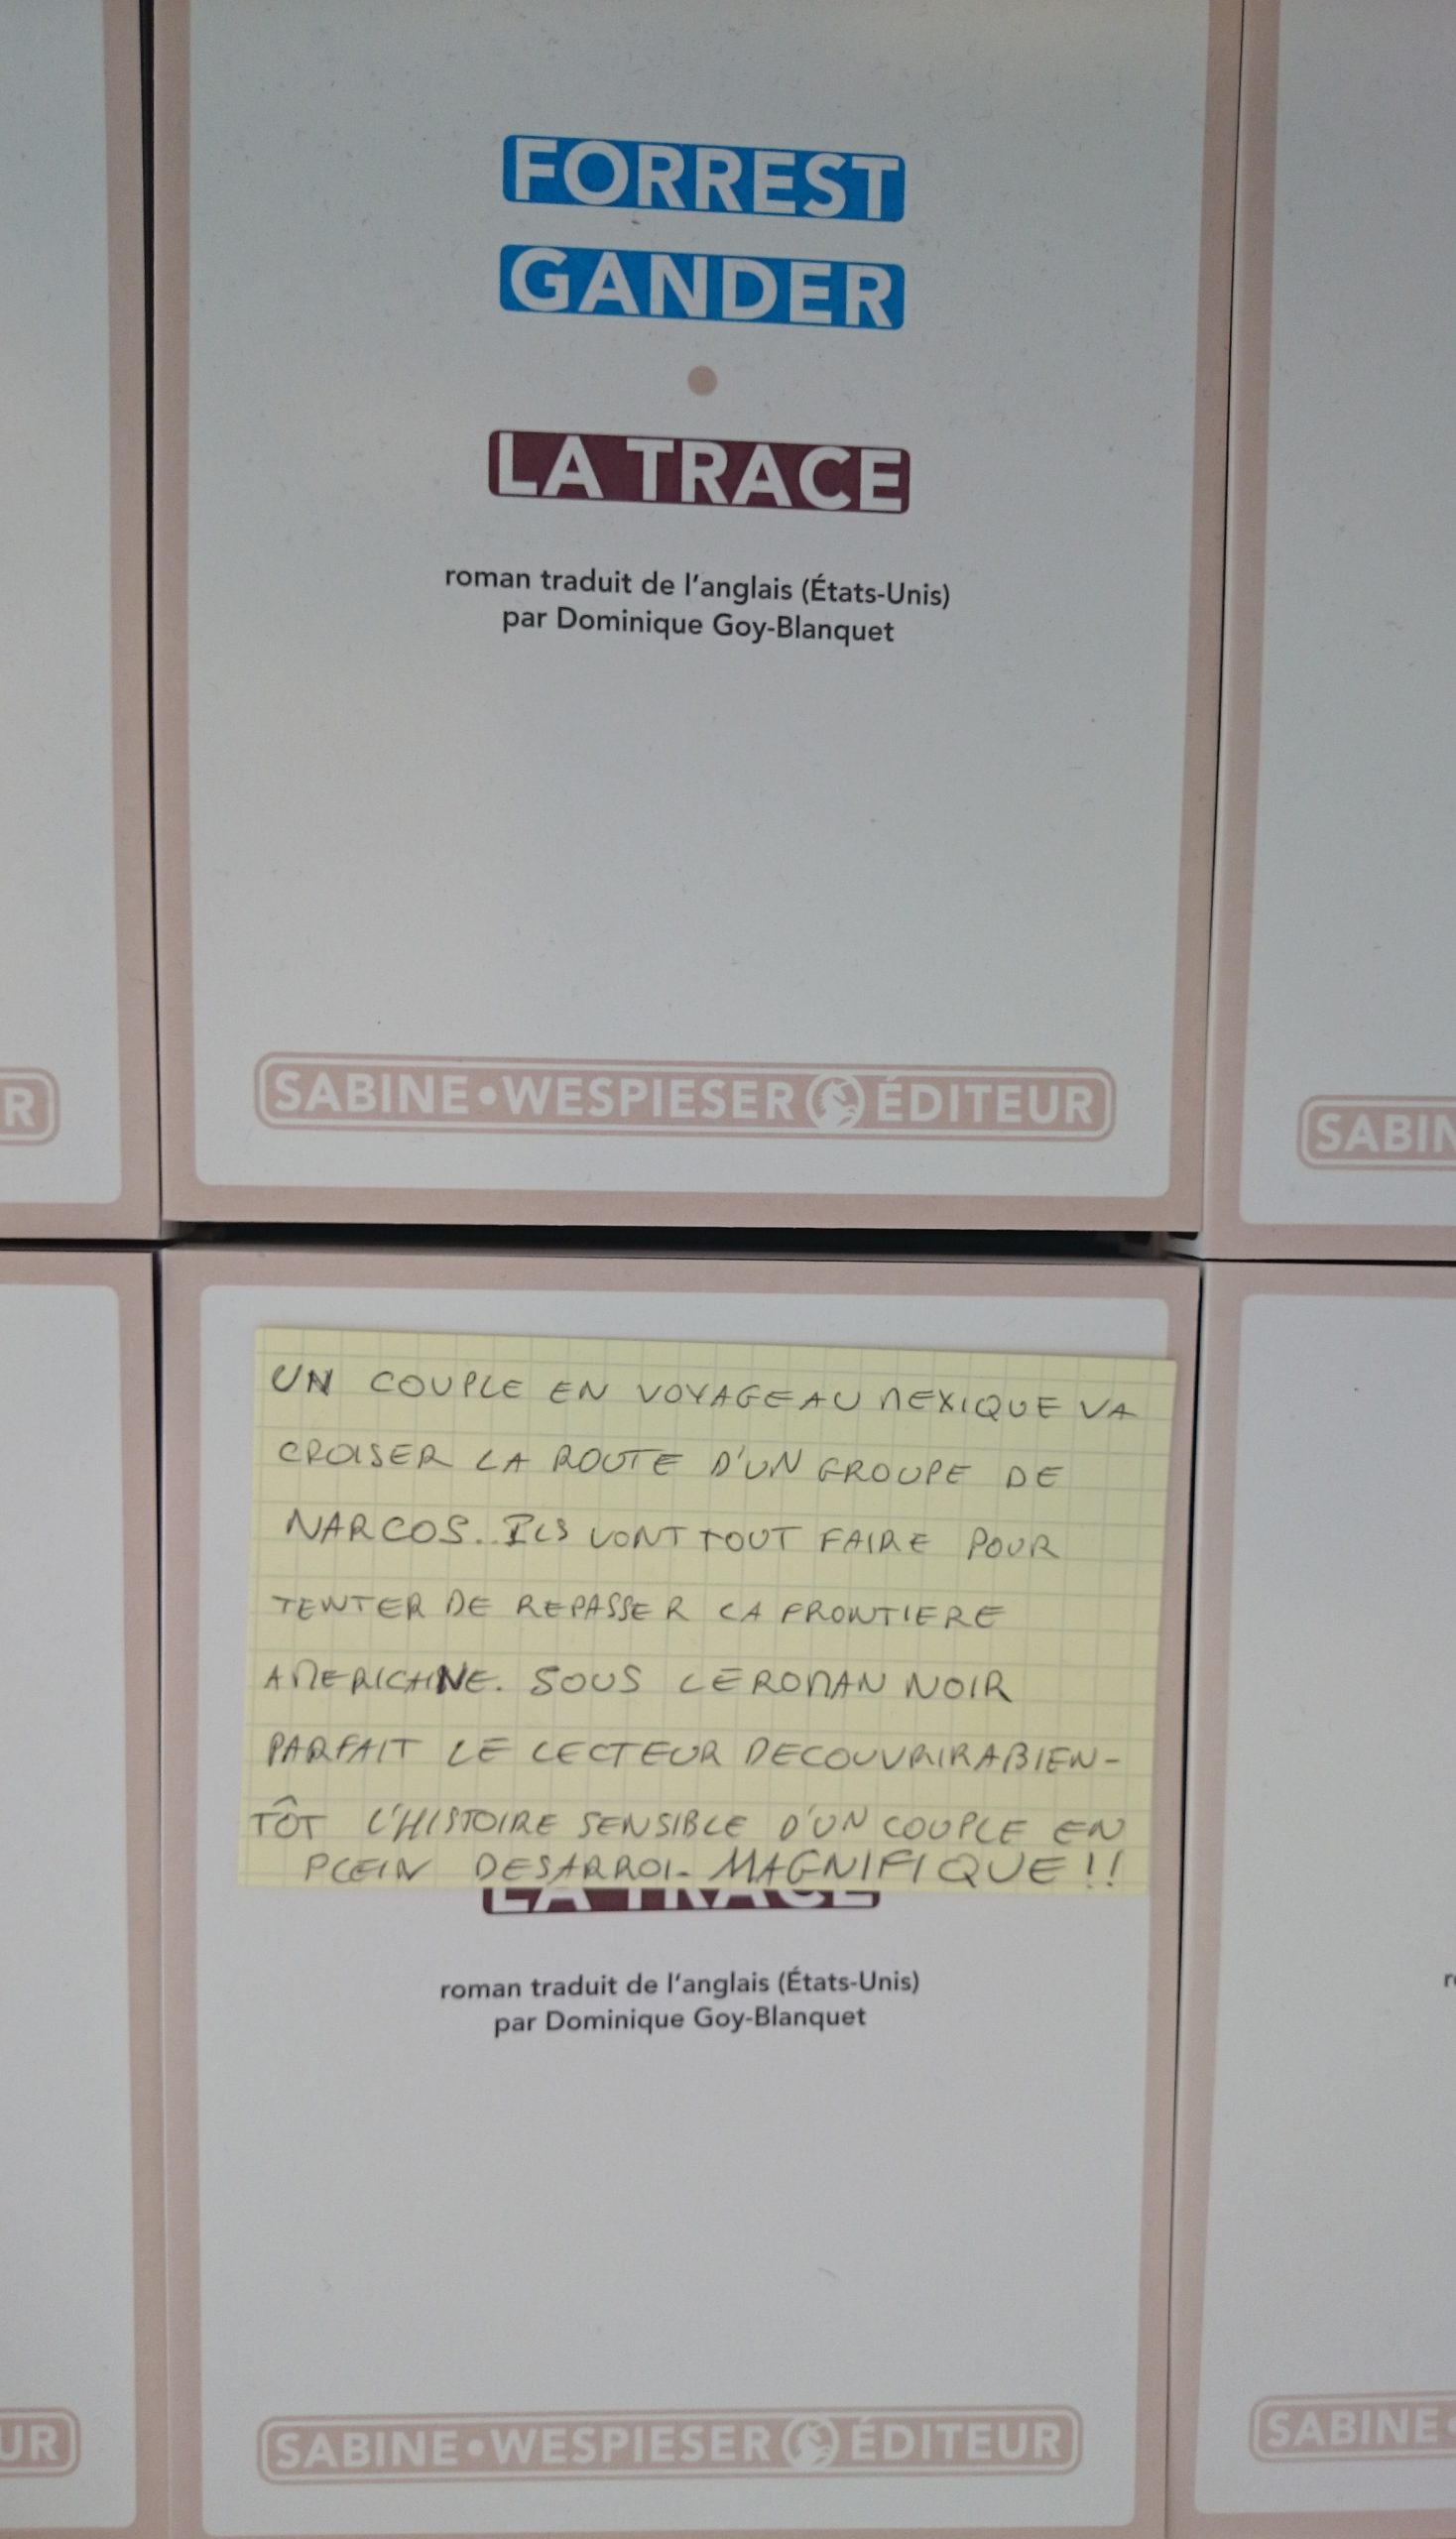 FORREST
GANDER
LA TRACE
roman traduit de l'anglais (États-Unis)
par Dominique Goy-Blanquet
R
SABINE•WESPIESER ÉDITEUR
SABIN
UN COUPLE EN VOYAGE AU MEXIQUE VA
CROISER LA ROUTE D'UN GROUPE DE
NARCOS.. ILS VONT TOUT FAIRE POUR
TENTER DE REPASSER LA FRONTIERE
AMERICAINE. SOUS LE ROMAN NOIR
PARFAIT LE LECTEUR DECOUVRIRA BIEN-
TÔT L'HISTOIRE SENSIBLE D'UN COUPLE EN
PLEIN DESARROI. MAGNIFIQUE!!
LA TRACE
roman traduit de l'anglais (États-Unis)
par Dominique Goy-Blanquet
UR
SABINE•WESPIESER ÉDITEUR
SABINE•